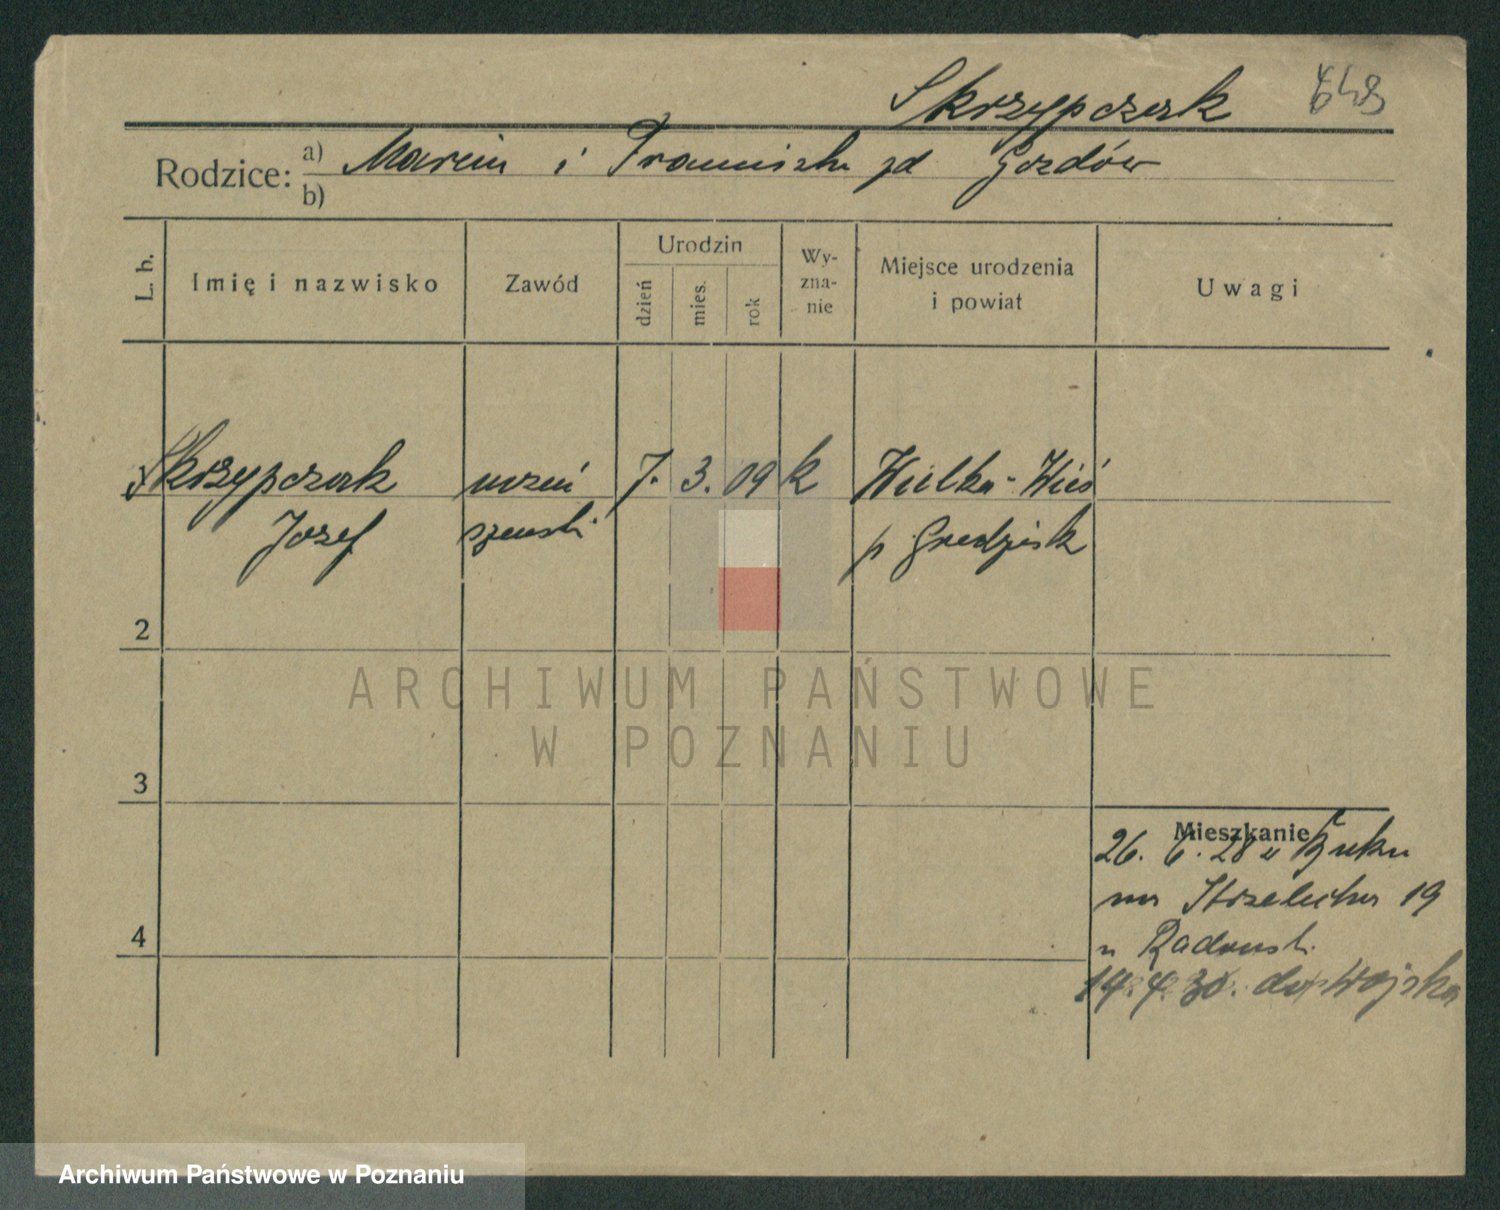 Skrzypczak 648
Rodzice: a) Marcin i Franciszka zd Gozdów
b)
L. b. Imię i nazwisko Zawód Urodzin dzień mies. rok Wy-zna-nie Miejsce urodzenia i powiat Uwagi
Skrzypczak uczeń 7. 3. 09 k Wielka-Wieś
Jozef szewski p Grodzisk
2
ARCHIWUM PAŃSTWOWE
W POZNANIU
3
Mieszkanie
26. 6. 28 z Buku
na Strzelecka 19
u Radomsk.
4
14. 4. 30. do Wojska
Archiwum Państwowe w Poznaniu